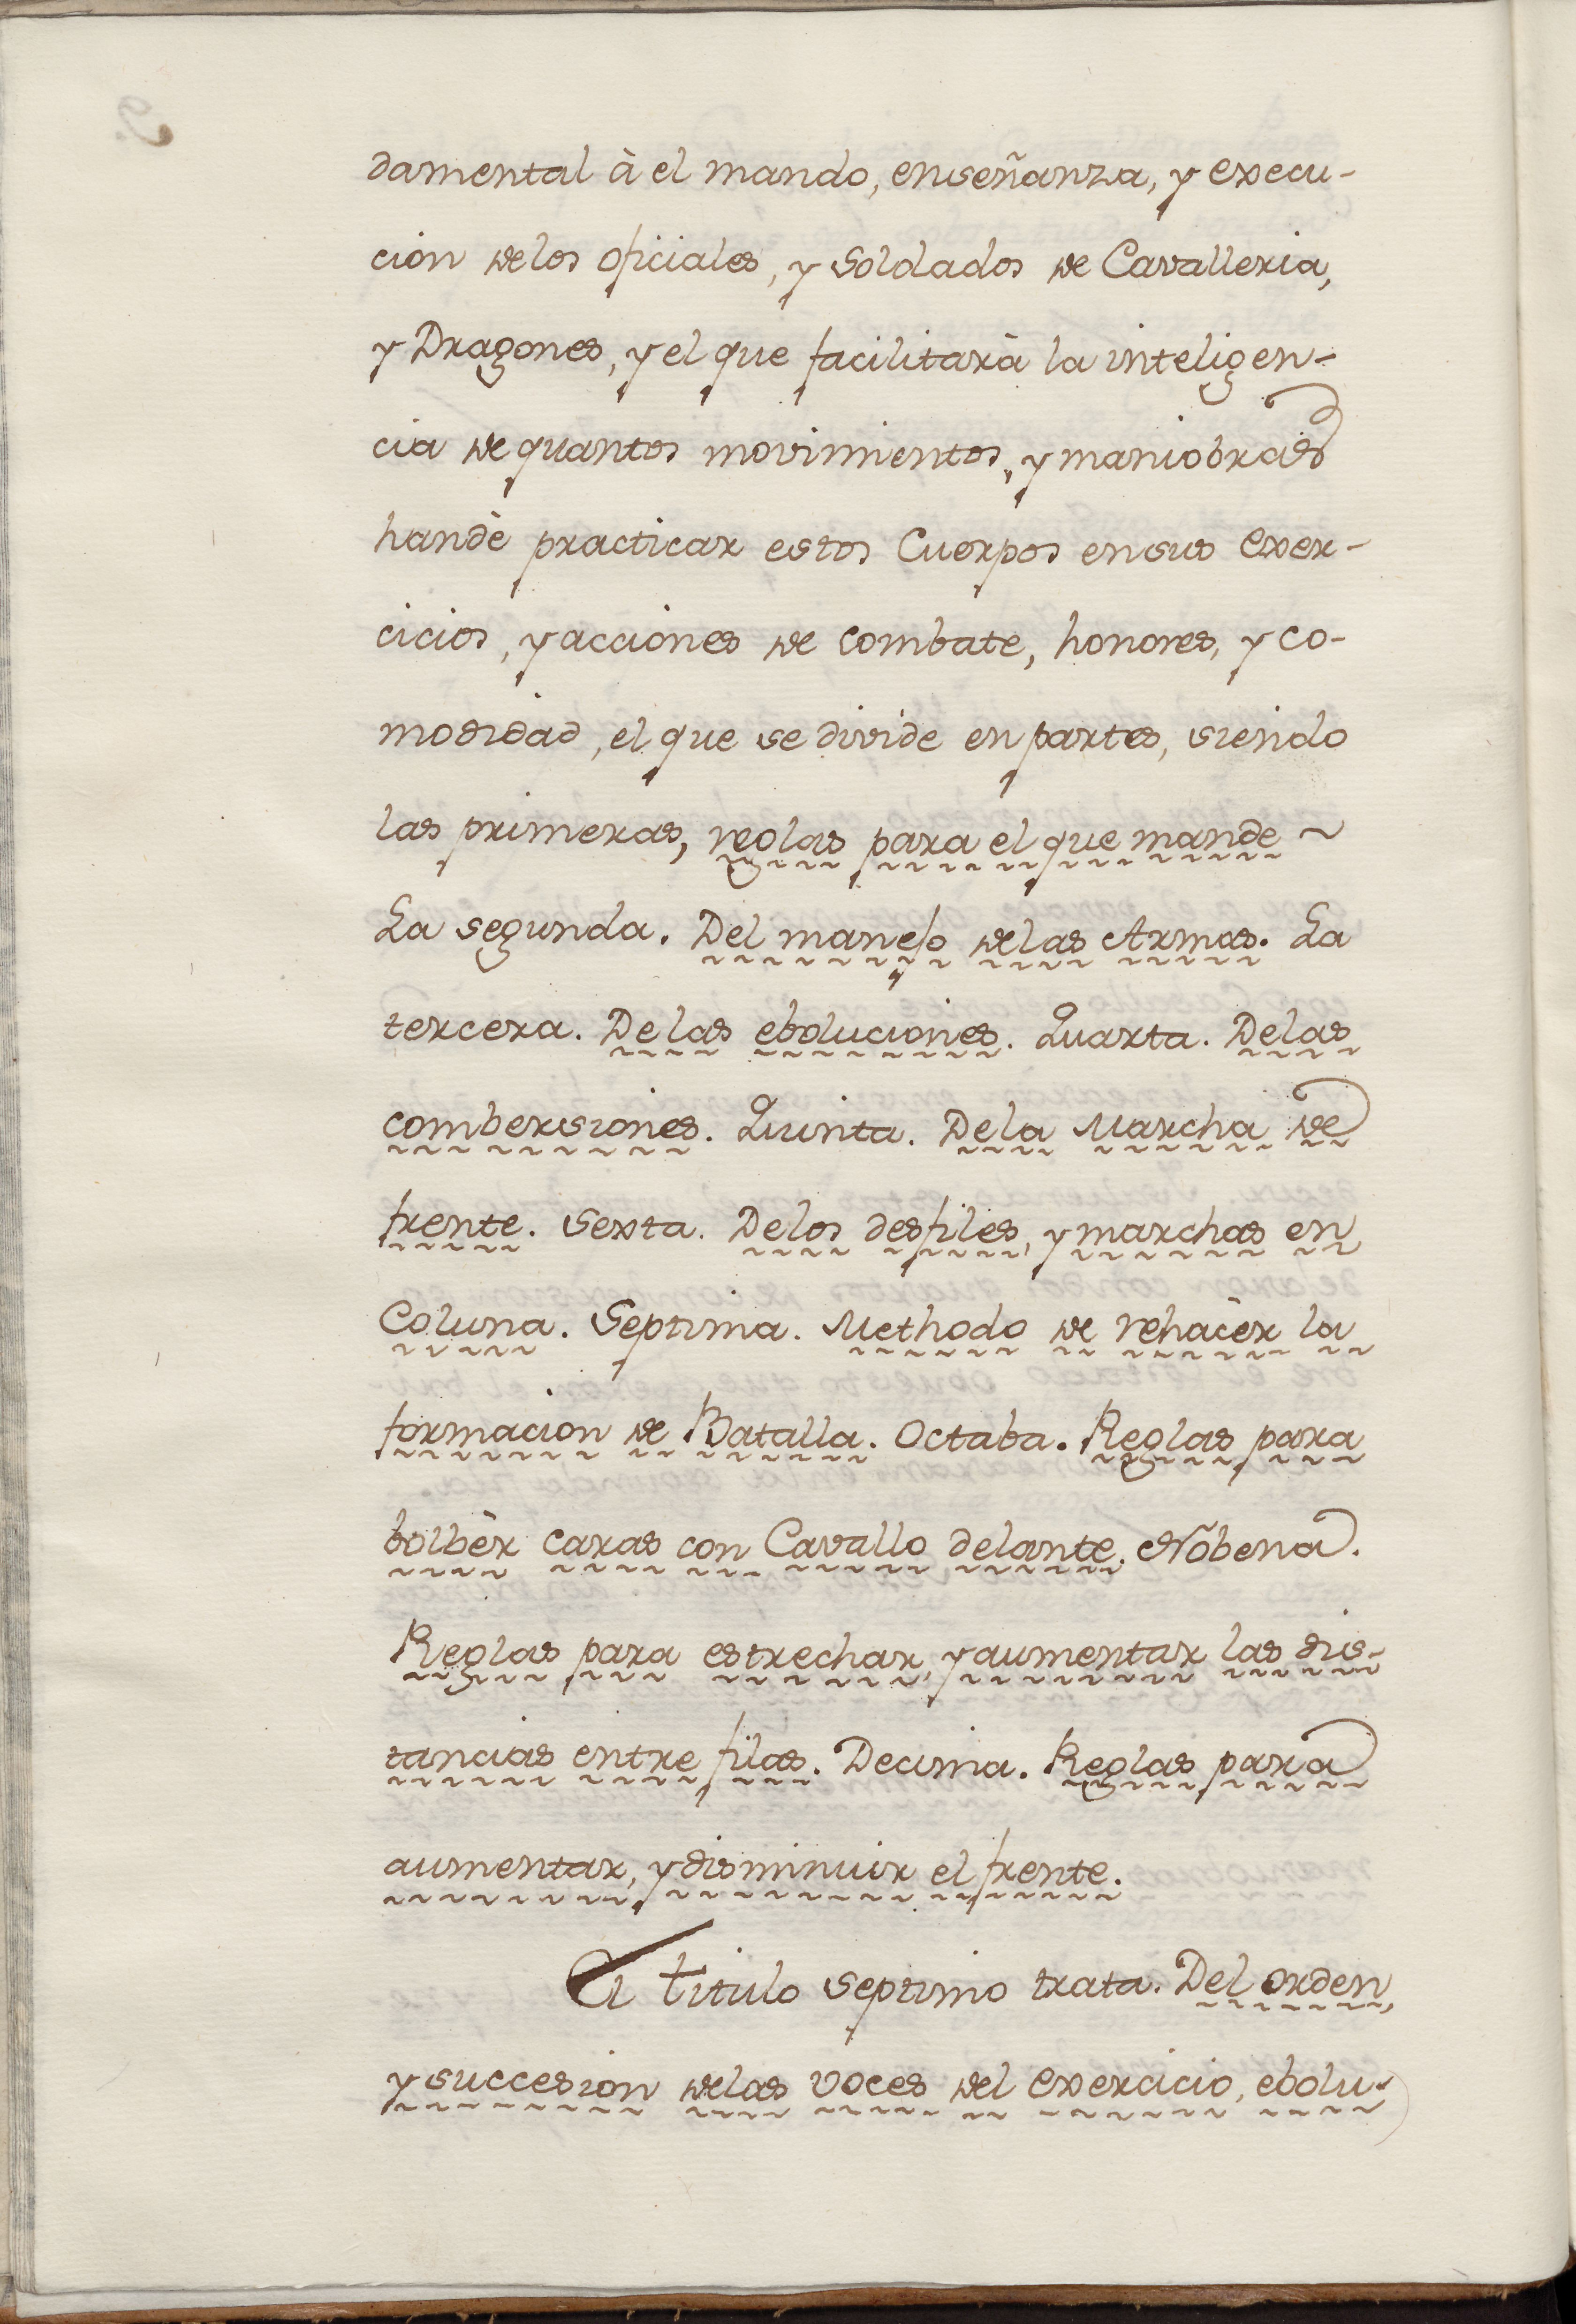 damental à el mando, enseñanza, y execu-
cion delos oficiales, y Soldados de Cavalleria,
y Dragones, y el que facilitarà la inteligen-
cia de quantos movimientos, y maniobras
handè practicar estos Cuerpos ensus exer-
cicios, y acciones de combate, honores, y co-
modidad, el que se divide en partes, siendo
las primeras, reglas para el que mande ~
La segunda. Del manejo delas Armas. La
tercera. De las eboluciones. Quarta. Delas
combersiones. Quinta. Dela Marcha de
frente. Sexta. Delos desfiles, y marchas en
Coluna. Septima. Methodo de rehàcèr la
formacion de Batalla. Octaba. Reglas para
bolbèr caras con Cavallo delante. Nobena.
Reglas para estrechar, y aumentar las dis-
tancias entre filas. Decima. Reglas para
aumentar, y disminuir el frente.
El titulo septimo trata. Del orden,
y succesion delas voces del exercicio, ebolu-